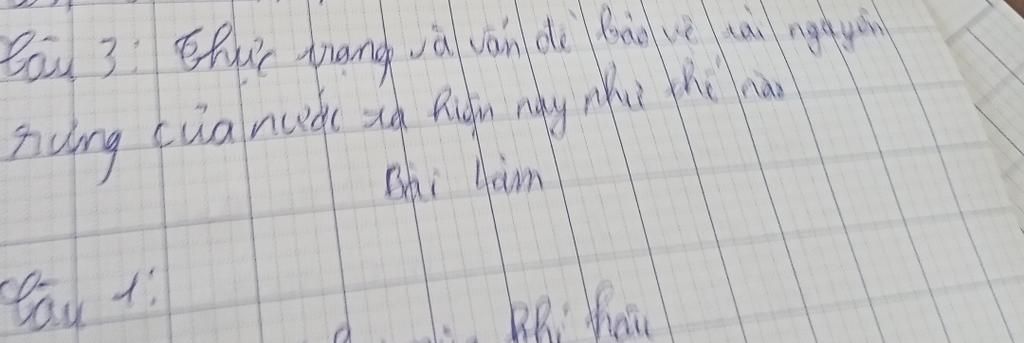 Câu 3: Thực trạng và vấn đề bảo vệ tài nguyên
rừng của nước ta hiện nay như thế nào
Bài làm
Câu 1:
khí hậu